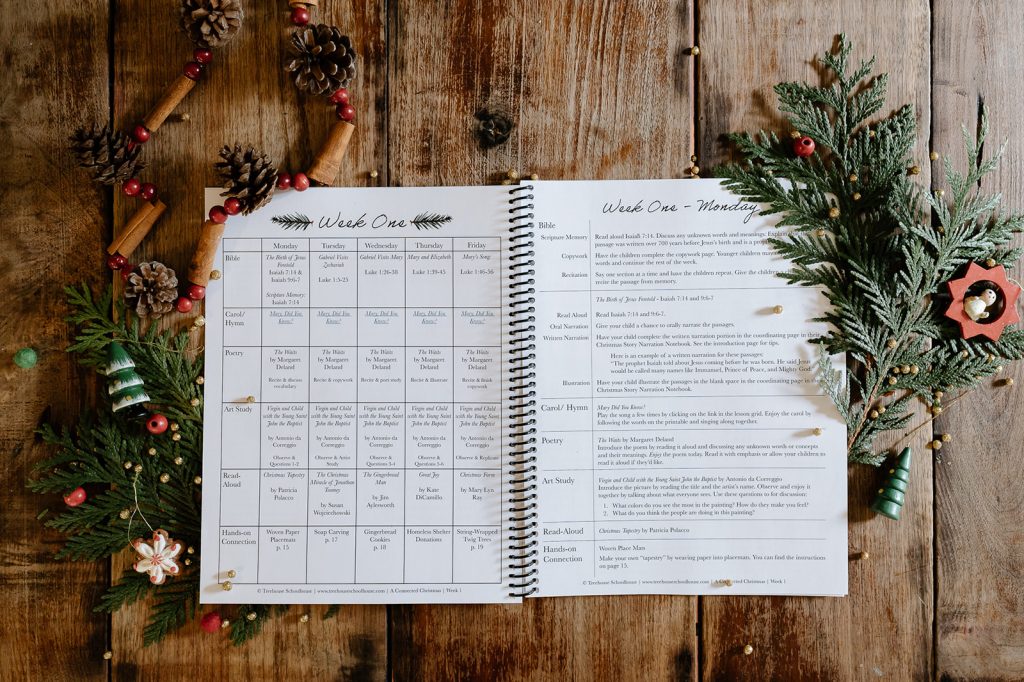 Week One
Monday
Tuesday
Wednesday
Thursday
Friday
Bible
The Birth of Jesus
Foretold
Isaiah 7:14 &
Isaiah 9:6-7
Scripture Memory:
Isaiah 7:14
Gabriel Visits
Zechariah
Luke 1:5-25
Gabriel Visits Mary
Luke 1:26-38
Mary and Elizabeth
Luke 1:39-45
Mary's Song
Luke 1:46-56
Carol/
Hymn
Mary, Did You
Know?
Mary, Did You
Know?
Mary, Did You
Know?
Mary, Did You
Know?
Mary, Did You
Know?
Poetry
The Waits
by Margaret
Deland
Recite & discuss
vocabulary
The Waits
by Margaret
Deland
Recite & copywork
The Waits
by Margaret
Deland
Recite & poet study
The Waits
by Margaret
Deland
Recite & Illustrate
The Waits
by Margaret
Deland
Recite & finish
copywork
Art Study
Virgin and Child
with the Young Saint
John the Baptist
by Antonio da
Correggio
Observe &
Questions 1-2
Virgin and Child
with the Young Saint
John the Baptist
by Antonio da
Correggio
Observe & Artist
Study
Virgin and Child
with the Young Saint
John the Baptist
by Antonio da
Correggio
Observe &
Questions 3-4
Virgin and Child
with the Young Saint
John the Baptist
by Antonio da
Correggio
Observe &
Questions 5-6
Virgin and Child
with the Young Saint
John the Baptist
by Antonio da
Correggio
Observe & Replicate
Read-
Aloud
Christmas Tapestry
by Patricia
Polacco
The Christmas
Miracle of Jonathan
Toomey
by Susan
Wojciechowski
The Gingerbread
Man
by Jim
Aylesworth
Great Joy
by Kate
DiCamillo
Christmas Farm
by Mary Lyn
Ray
Hands-on
Connection
Woven Paper
Placemats
p. 15
Soap Carving
p. 17
Gingerbread
Cookies
p. 18
Homeless Shelter
Donations
String-Wrapped
Twig Trees
p. 19
© Treehouse Schoolhouse | www.treehouseschoolhouse.com | A Connected Christmas | Week 1
Week One - Monday
Bible
Scripture Memory
Read aloud Isaiah 7:14. Discuss any unknown words and meanings. Explain
passage was written over 700 years before Jesus's birth and is a
Copywork
Have the children complete the copywork page. Younger children may
words and continue the rest of the week.
Recitation
Say one section at a time and have the children repeat. Give the children
recite the passage from memory.
The Birth of Jesus Foretold - Isaiah 7:14 and 9:6-7
Read Aloud
Read Isaiah 7:14 and 9:6-7.
Oral Narration
Give your child a chance to orally narrate the passages.
Written Narration
Have your child complete the written narration portion in the coordinating page in their
Christmas Story Narration Notebook. See the introduction page for tips.
Here is an example of a written narration for these passages:
"The prophet Isaiah told about Jesus coming before he was born. He said Jesus
would be called many names like Immanuel, Prince of Peace, and Mighty God."
Illustration
Have your child illustrate the passages in the blank space in the coordinating page in the
Christmas Story Narration Notebook.
Carol/ Hymn
Mary Did You Know?
Play the song a few times by clicking on the link in the lesson grid. Enjoy the carol by
following the words on the printable and singing along together.
Poetry
The Waits by Margaret Deland
Introduce the poem by reading it aloud and discussing any unknown words or concepts
and their meanings. Enjoy the poem today. Read it with emphasis or allow your children to
read it aloud if they'd like.
Art Study
Virgin and Child with the Young Saint John the Baptist by Antonio da Correggio
Introduce the picture by reading the title and the artist's name. Observe and enjoy it
together by talking about what everyone sees. Use these questions to for discussion:
1. What colors do you see the most in the painting? How do they make you feel?
2. What do you think the people are doing in this painting?
Read-Aloud
Christmas Tapestry by Patricia Polacco
Hands-on
Connection
Woven Place Mats
Make your own "tapestry" by weaving paper into placemats. You can find the instructions
on page 15.
© Treehouse Schoolhouse | www.treehouseschoolhouse.com | A Connected Christmas | Week 1